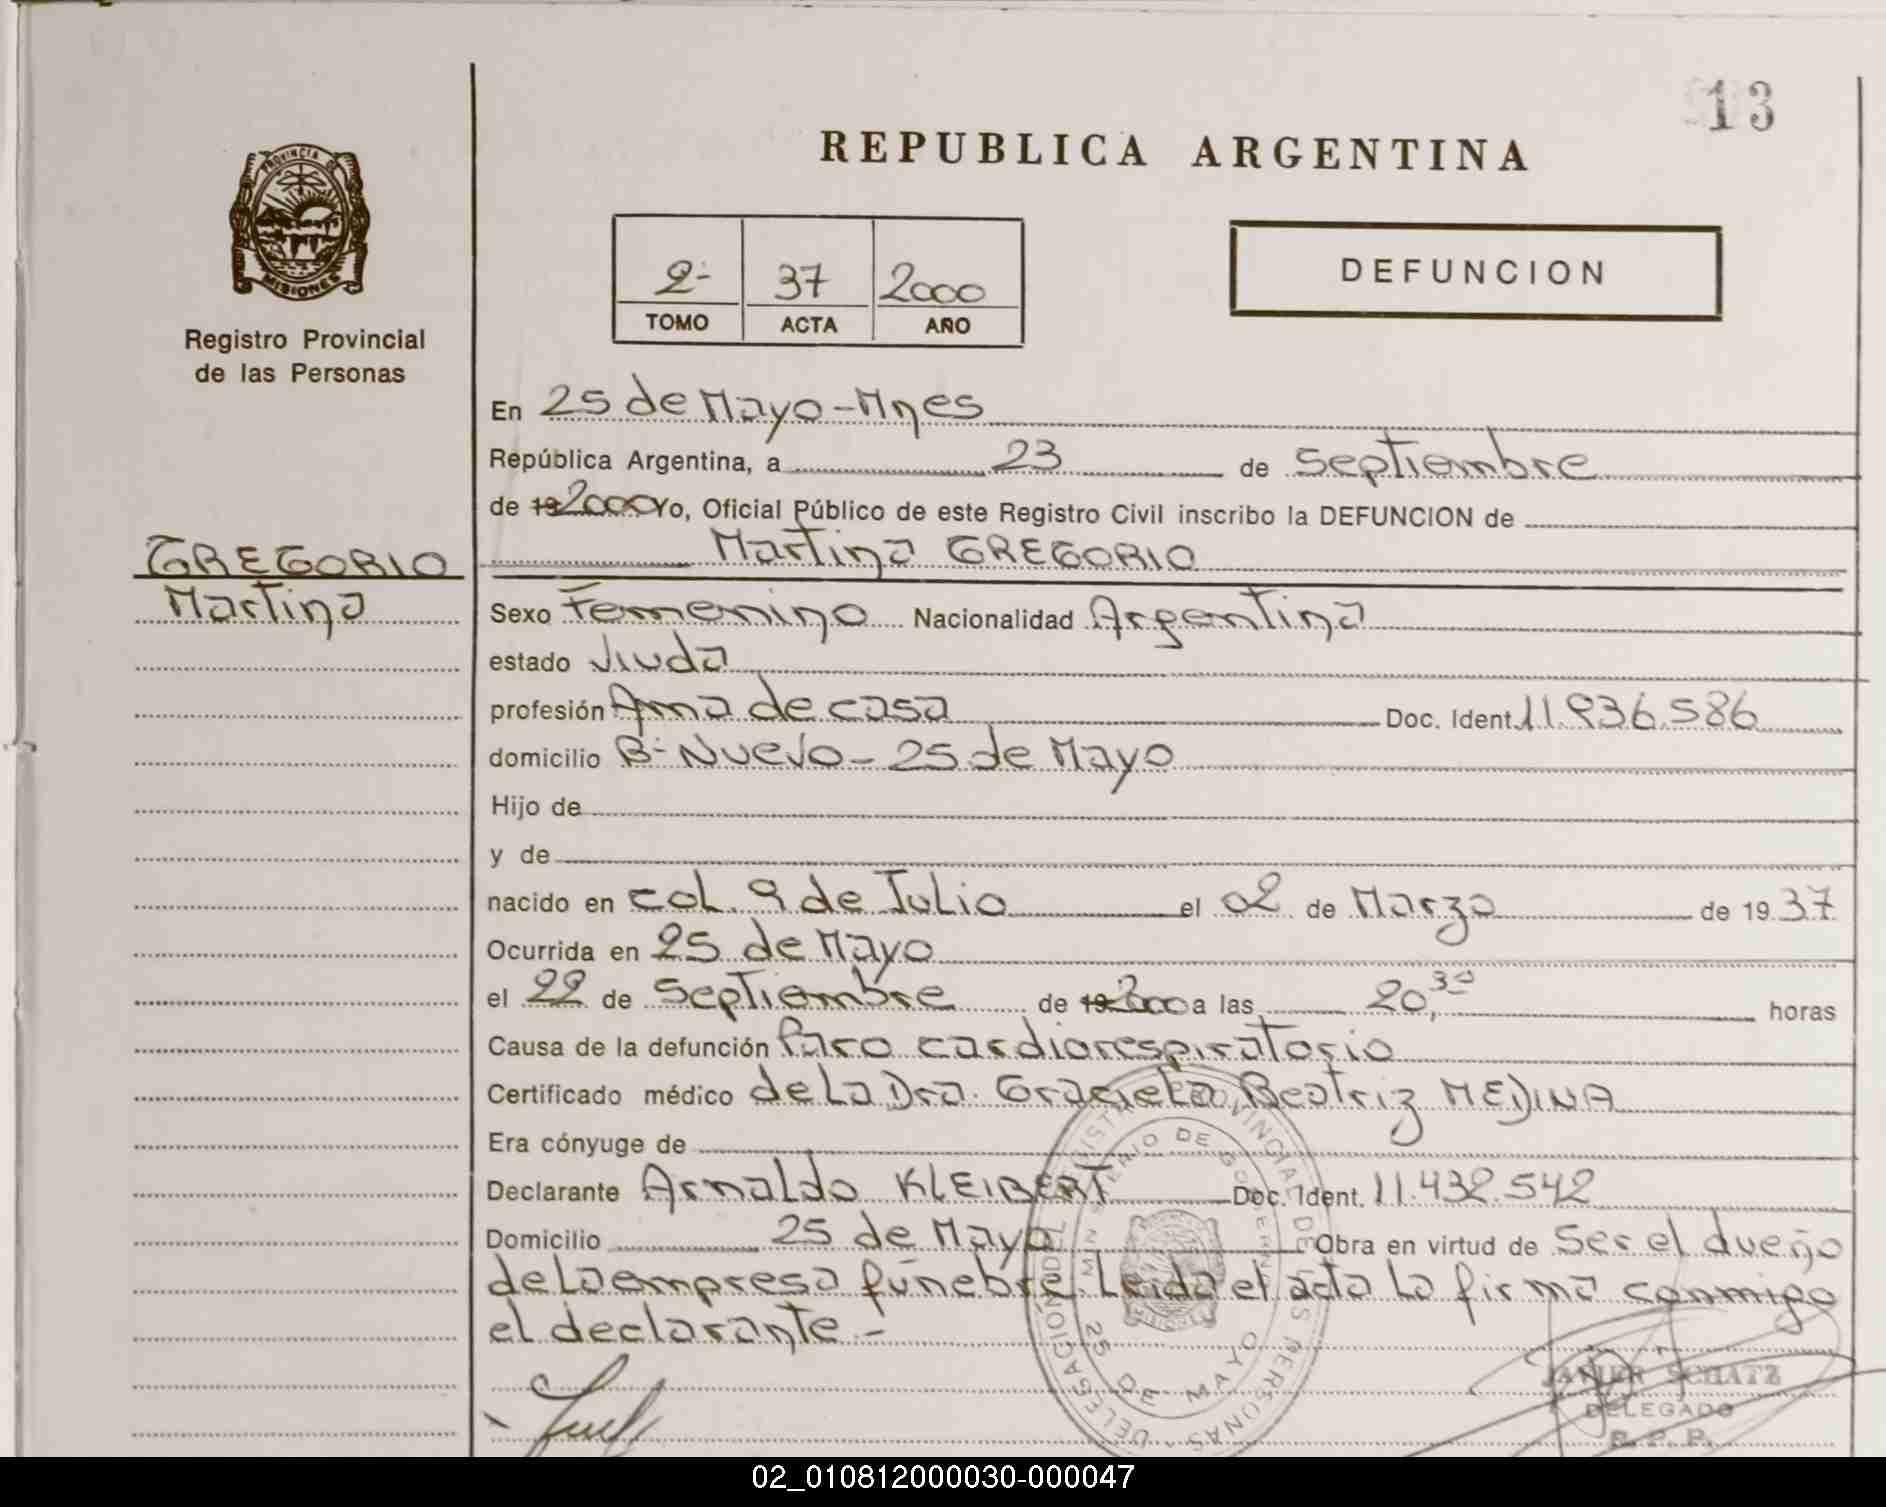 13
REPUBLICA ARGENTINA
PROVINCIA DE
MISIONES
Registro Provincial
de las Personas
2- 37 2000
TOMO ACTA AÑO
DEFUNCION
En 25 de Mayo-Mnes
República Argentina, a 23 de Septiembre
de 19 2000 Yo, Oficial Público de este Registro Civil inscribo la DEFUNCION de
Martina GREGORIO
GREGORIO
Martina
Sexo Femenino Nacionalidad Argentina
estado Viuda
profesión Ama de casa Doc. Ident. 11.936.586
domicilio B- Nuevo - 25 de Mayo
Hijo de
y de
nacido en col. 9 de Julio el 02 de Marzo de 1937
Ocurrida en 25 de Mayo
el 22 de Septiembre de 19 2000 a las 20,30 horas
Causa de la defunción Paro cardiorespiratorio
Certificado médico de la Dra. Graciela Beatriz MEDINA
Era cónyuge de
Declarante Arnaldo KLEIBERT Doc. Ident. 11.432.542
Domicilio 25 de Mayo Obra en virtud de Ser el dueño
de la empresa fúnebre. Leida el acta la firma conmigo
el declarante -
25 DE MAYO
JAVIER SCHATZ
DELEGADO
R. P. P.
02_010812000030-000047